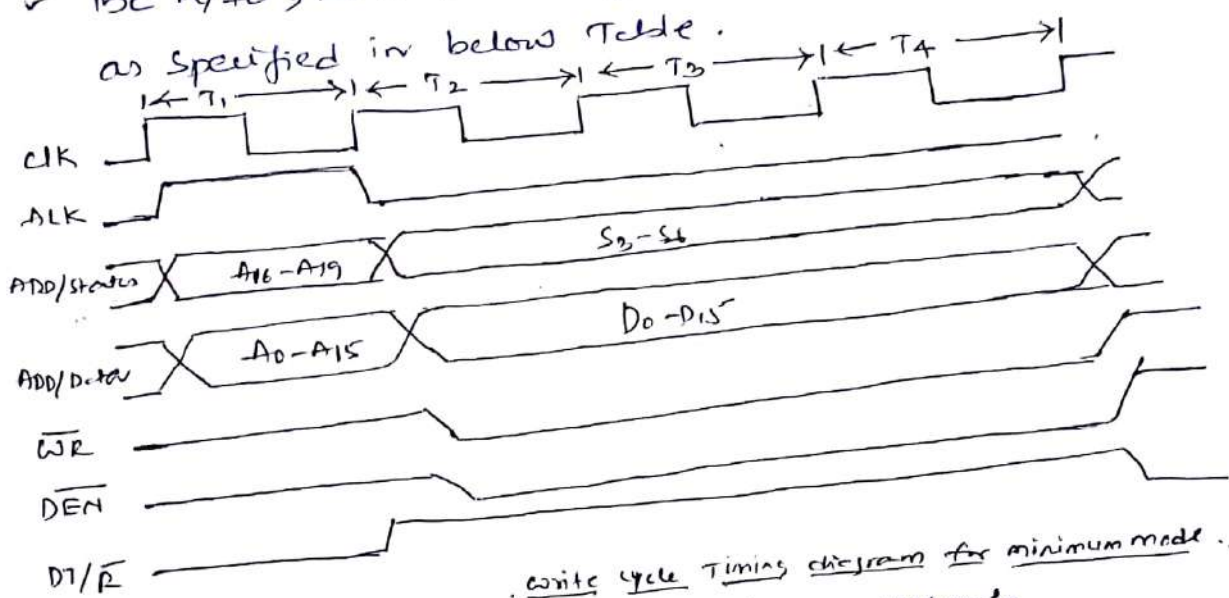 as specified in below Table.
T1 T2 T3 T4
CLK
ALK
ADD/Status A16-A19 S3-S6
ADD/Data A0-A15 D0-D15
W̅R̅
D̅E̅N̅
DT/R̅
Write cycle Timing diagram for minimum mode.